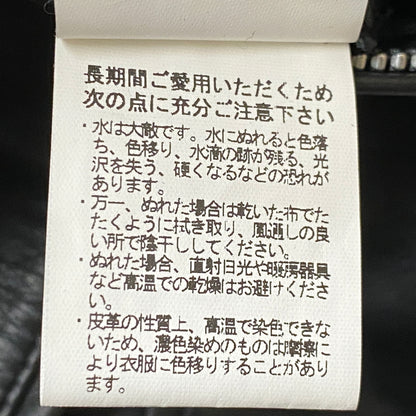 長期間ご愛用いただくため
次の点に充分ご注意下さい
・水は大敵です。水にぬれると色落
ち、色移り、水滴の跡が残る、光
沢を失う、硬くなるなどの恐れが
あります。
・万一、ぬれた場合は乾いた布でた
たくように拭き取り、風通しの良
い所で陰干ししてください。
・ぬれた場合、直射日光や暖房器具
など高温での乾燥はお避けくださ
い。
・皮革の性質上、高温で染色できな
いため、濃色染めのものは摩擦に
より衣服に色移りすることがあり
ます。